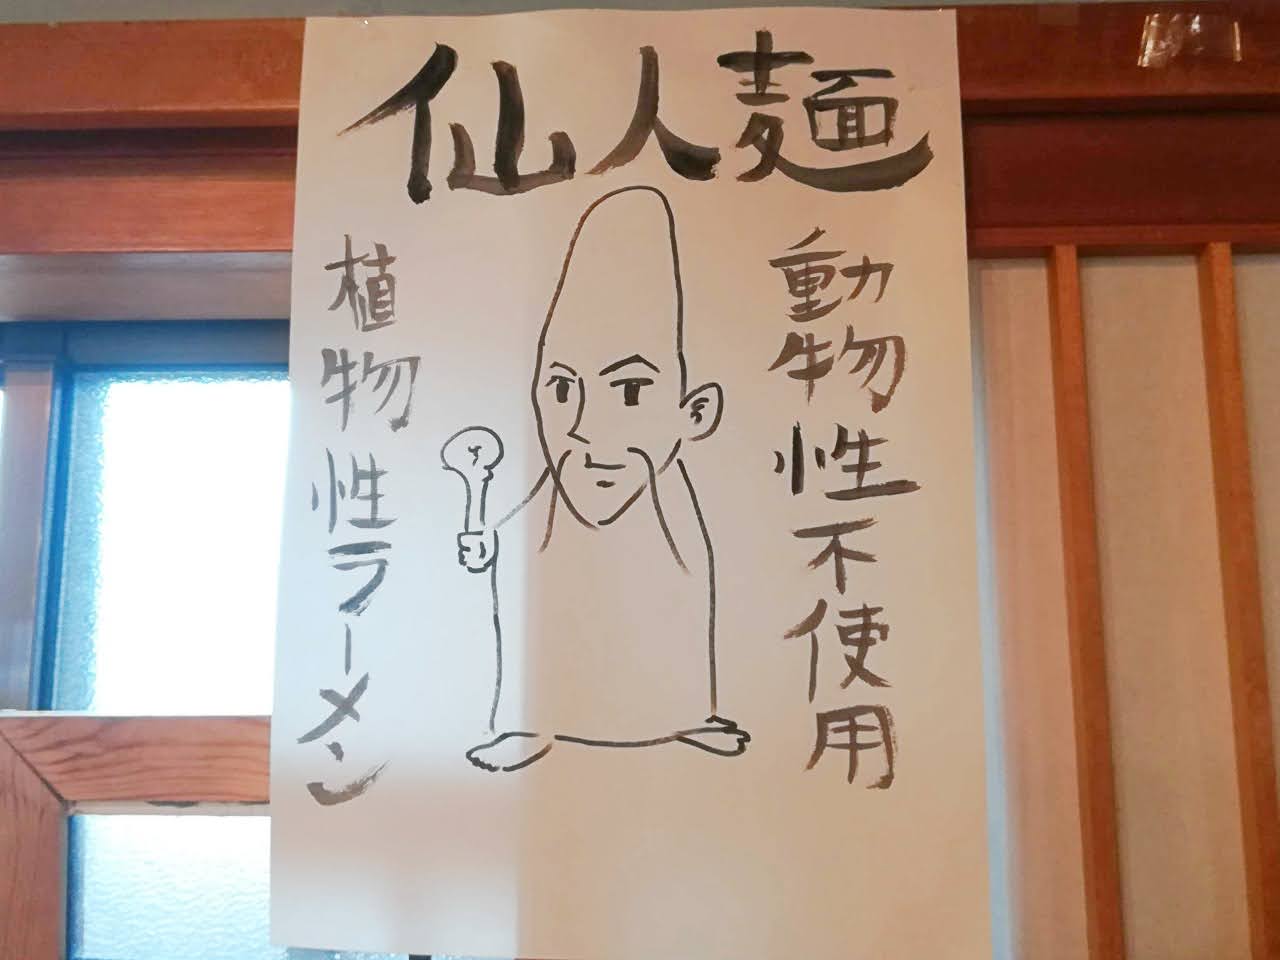 仙人麺
動物性不使用
植物性ラーメン